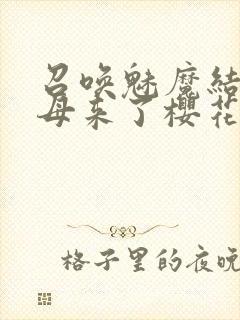 召唤魅魔结
母来了樱花
格子里的夜晚